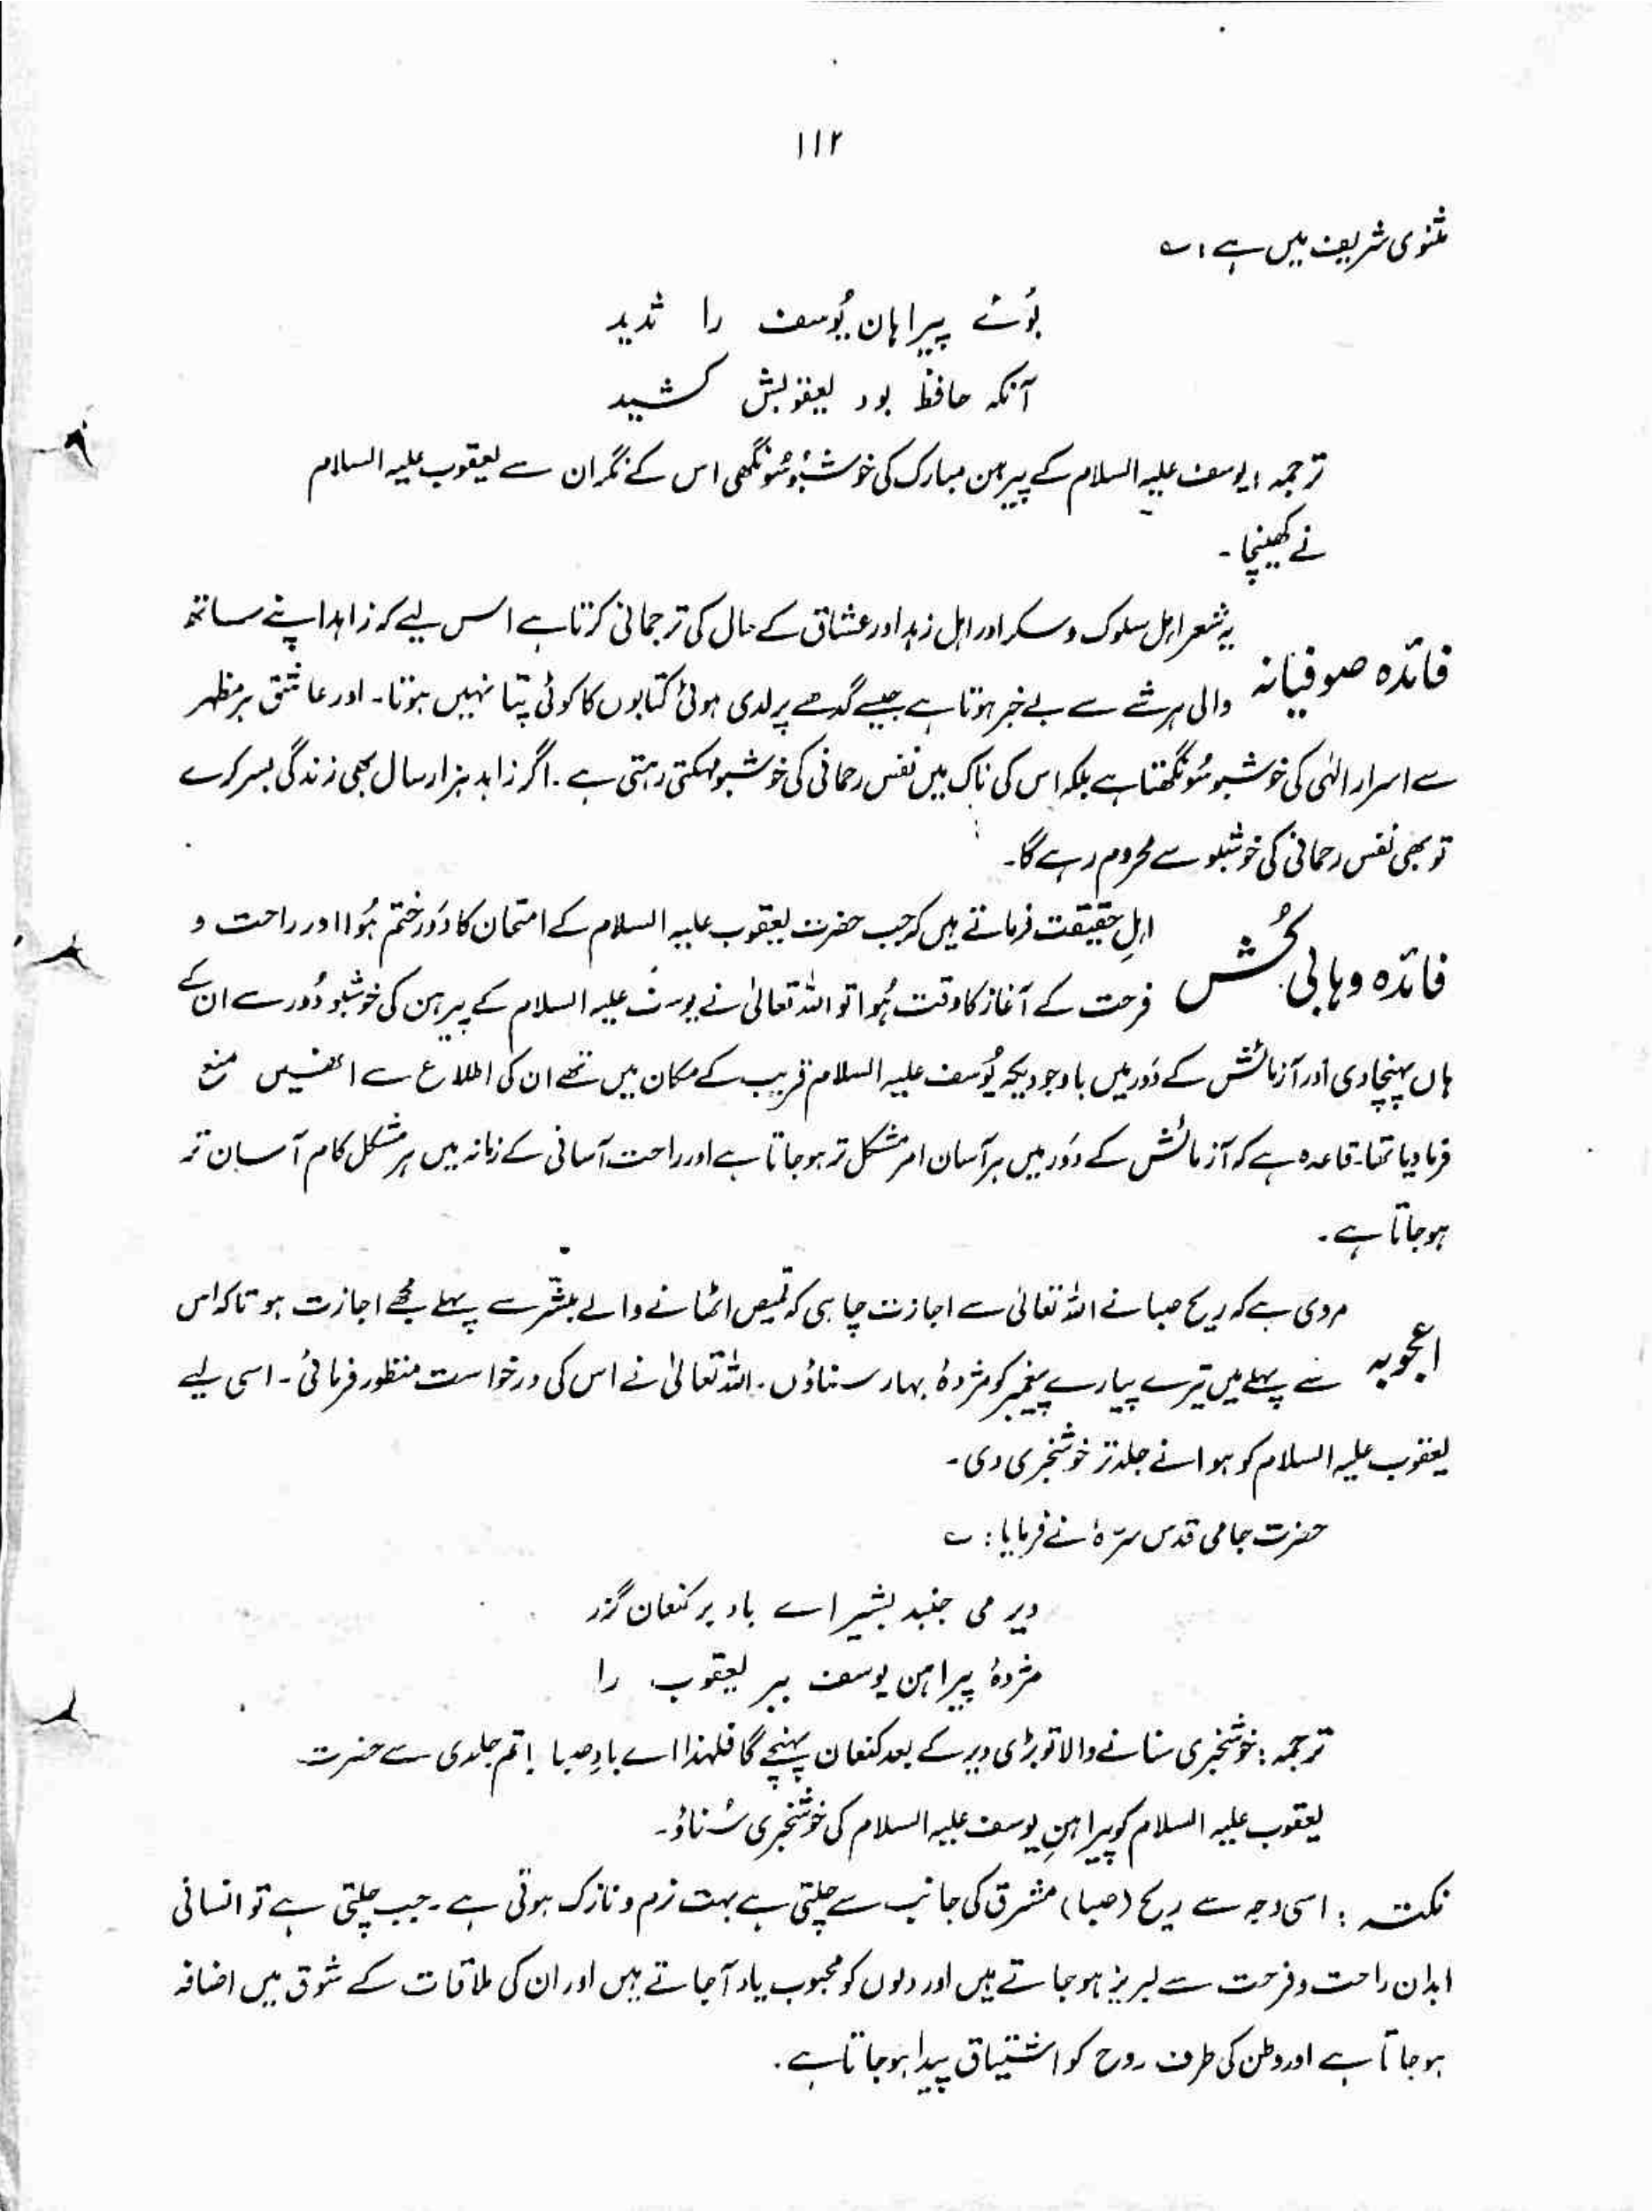 ۱۱۲
مثنوی شریف میں ہے: ؎
بُوئے پیراہان یُوسف را ندید
آنکہ حافظ بود یعقوبش کشید
ترجمہ: یوسف علیہ السلام کے پیرہن مبارک کی خوشبُو سُونگھی اس کے نگران سے یعقوب علیہ السلام
نے کھینچا۔
یہ شعر اہل سلوک و سکر اور اہل زہد اور عشاق کے حال کی ترجمانی کرتا ہے اس لیے کہ زاہد اپنے ساتھ
فائدہ صوفیانہ والی ہر شے سے بے خبر ہوتا ہے جیسے گدھے پر لدی ہوئی کتابوں کا کوئی پتا نہیں ہوتا۔ اور عاشق ہر مظہر
سے اسرار الٰہی کی خوشبو سُونگھتا ہے بلکہ اس کی ناک میں نفس رحمانی کی خوشبو مہکتی رہتی ہے۔ اگر زاہد ہزار سال بھی زندگی بسر کرے
تو بھی نفس رحمانی کی خوشبو سے محروم رہے گا۔
اہلِ حقیقت فرماتے ہیں کہ جب حضرت یعقوب علیہ السلام کے امتحان کا دَور ختم ہُوا اور راحت و
فائدہ وہابی کُش فرحت کے آغاز کا وقت ہُوا تو اللہ تعالیٰ نے یوسف علیہ السلام کے پیرہن کی خوشبو دُور سے ان کے
ہاں پہنچا دی اور آزمائش کے دَور میں باوجودیکہ یُوسف علیہ السلام قریب کے مکان میں تھے ان کی اطلاع سے انھیں منع
فرما دیا تھا۔ قاعدہ ہے کہ آزمائش کے دَور میں ہر آسان امر مشکل تر ہو جاتا ہے اور راحت آسانی کے زمانہ میں ہر مشکل کام آسان تر
ہو جاتا ہے۔
مروی ہے کہ ریح صبا نے اللہ تعالیٰ سے اجازت چاہی کہ قمیص اٹھانے والے مبشّر سے پہلے مجھے اجازت ہو تاکہ اس
اعجوبہ سے پہلے میں تیرے پیارے پیغمبر کو مژدۂ بہار سناؤں۔ اللہ تعالیٰ نے اس کی درخواست منظور فرمائی۔ اسی لیے
یعقوب علیہ السلام کو ہوا نے جلد تر خوشخبری دی۔
حضرت جامی قدس سرّہٗ نے فرمایا: ؎
دیر می جنبد بشیر اے باد بر کنعان گزر
مژدۂ پیراہن یوسف ببر یعقوب را
ترجمہ: خوشخبری سنانے والا تو بڑی دیر کے بعد کنعان پہنچے گا فلہٰذا اے بادِ صبا! تم جلدی سے حضرت
یعقوب علیہ السلام کو پیراہنِ یوسف علیہ السلام کی خوشخبری سُناؤ۔
نکتہ: اسی وجہ سے ریح (صبا) مشرق کی جانب سے چلتی ہے بہت نرم و نازک ہوتی ہے۔ جب چلتی ہے تو انسانی
ابدان راحت و فرحت سے لبریز ہو جاتے ہیں اور دلوں کو محبوب یاد آ جاتے ہیں اور ان کی ملاقات کے شوق میں اضافہ
ہو جاتا ہے اور وطن کی طرف روح کو اشتیاق پیدا ہو جاتا ہے۔